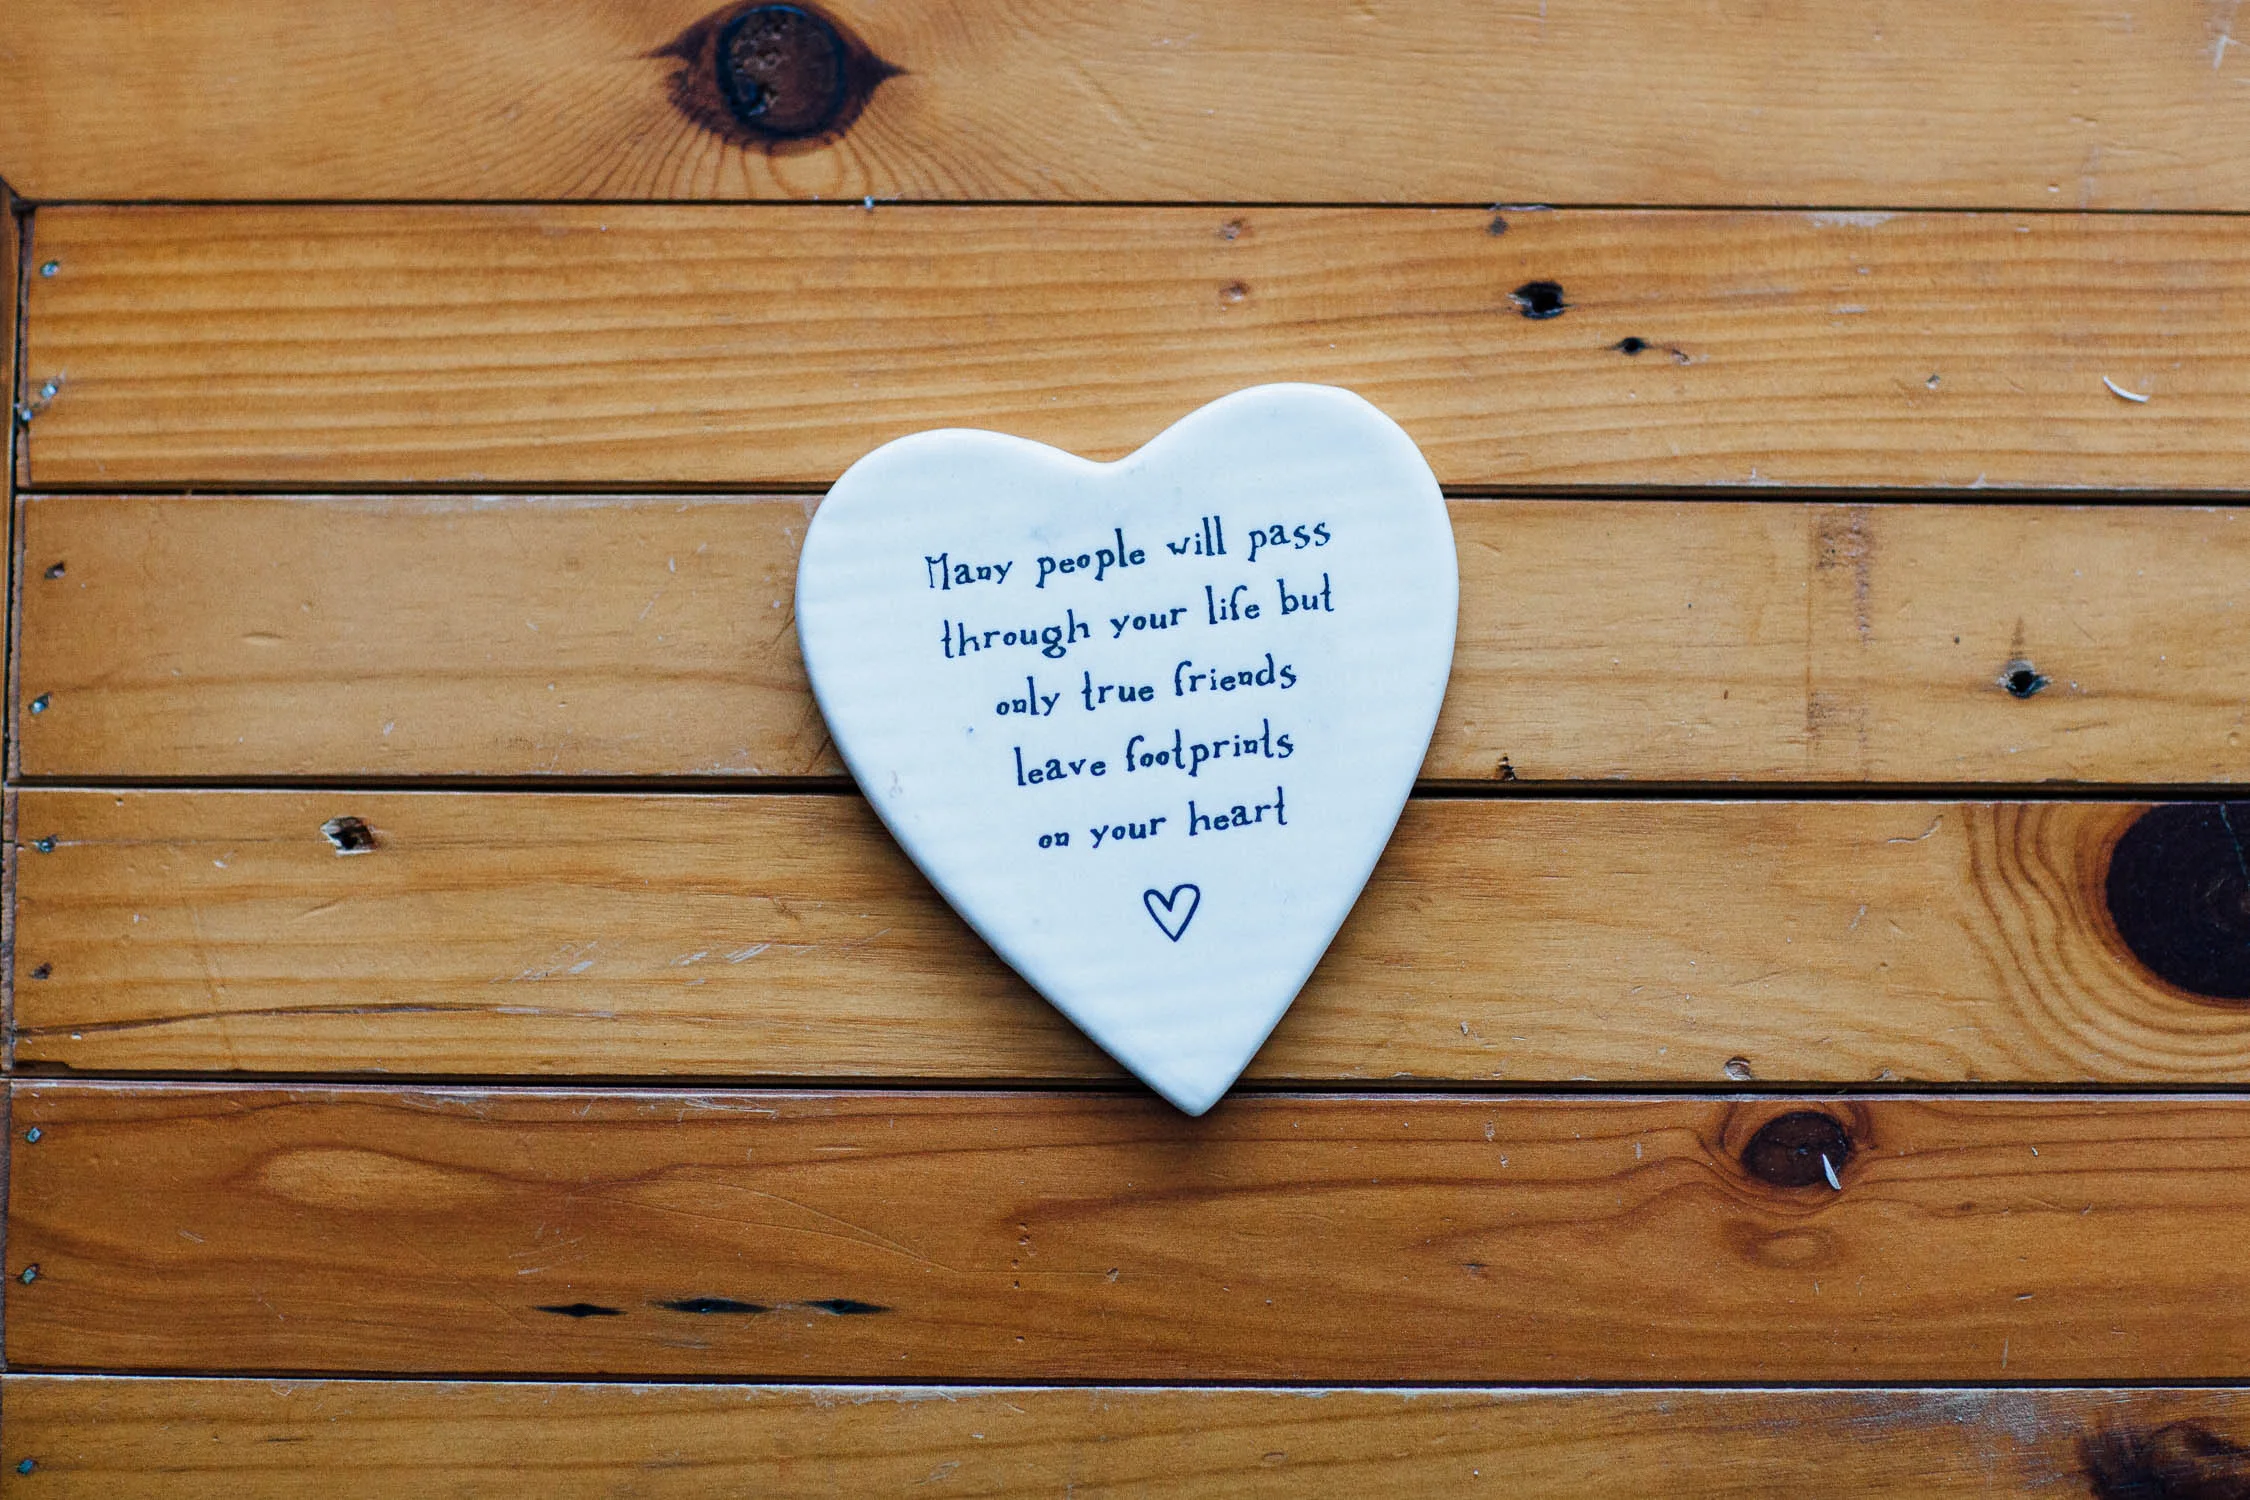 Many people will pass
through your life but
only true friends
leave footprints
on your heart